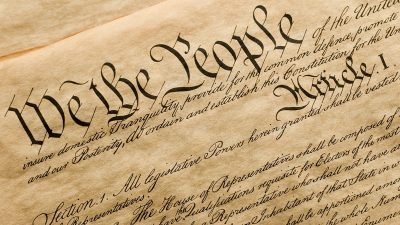 We the People of the United
insure domestic Tranquility, provide for the common defence, promote
and our Posterity, do ordain and establish this Constitution for the Uni
Article. I.
Section. 1. All legislative Powers herein granted shall be vested
Representatives.
The House of Representatives shall be composed of
the Qualifications requisite for Electors of the most
Representative who shall not have at
Inhabitant of that State in w
shall be apportioned am
the whole Num